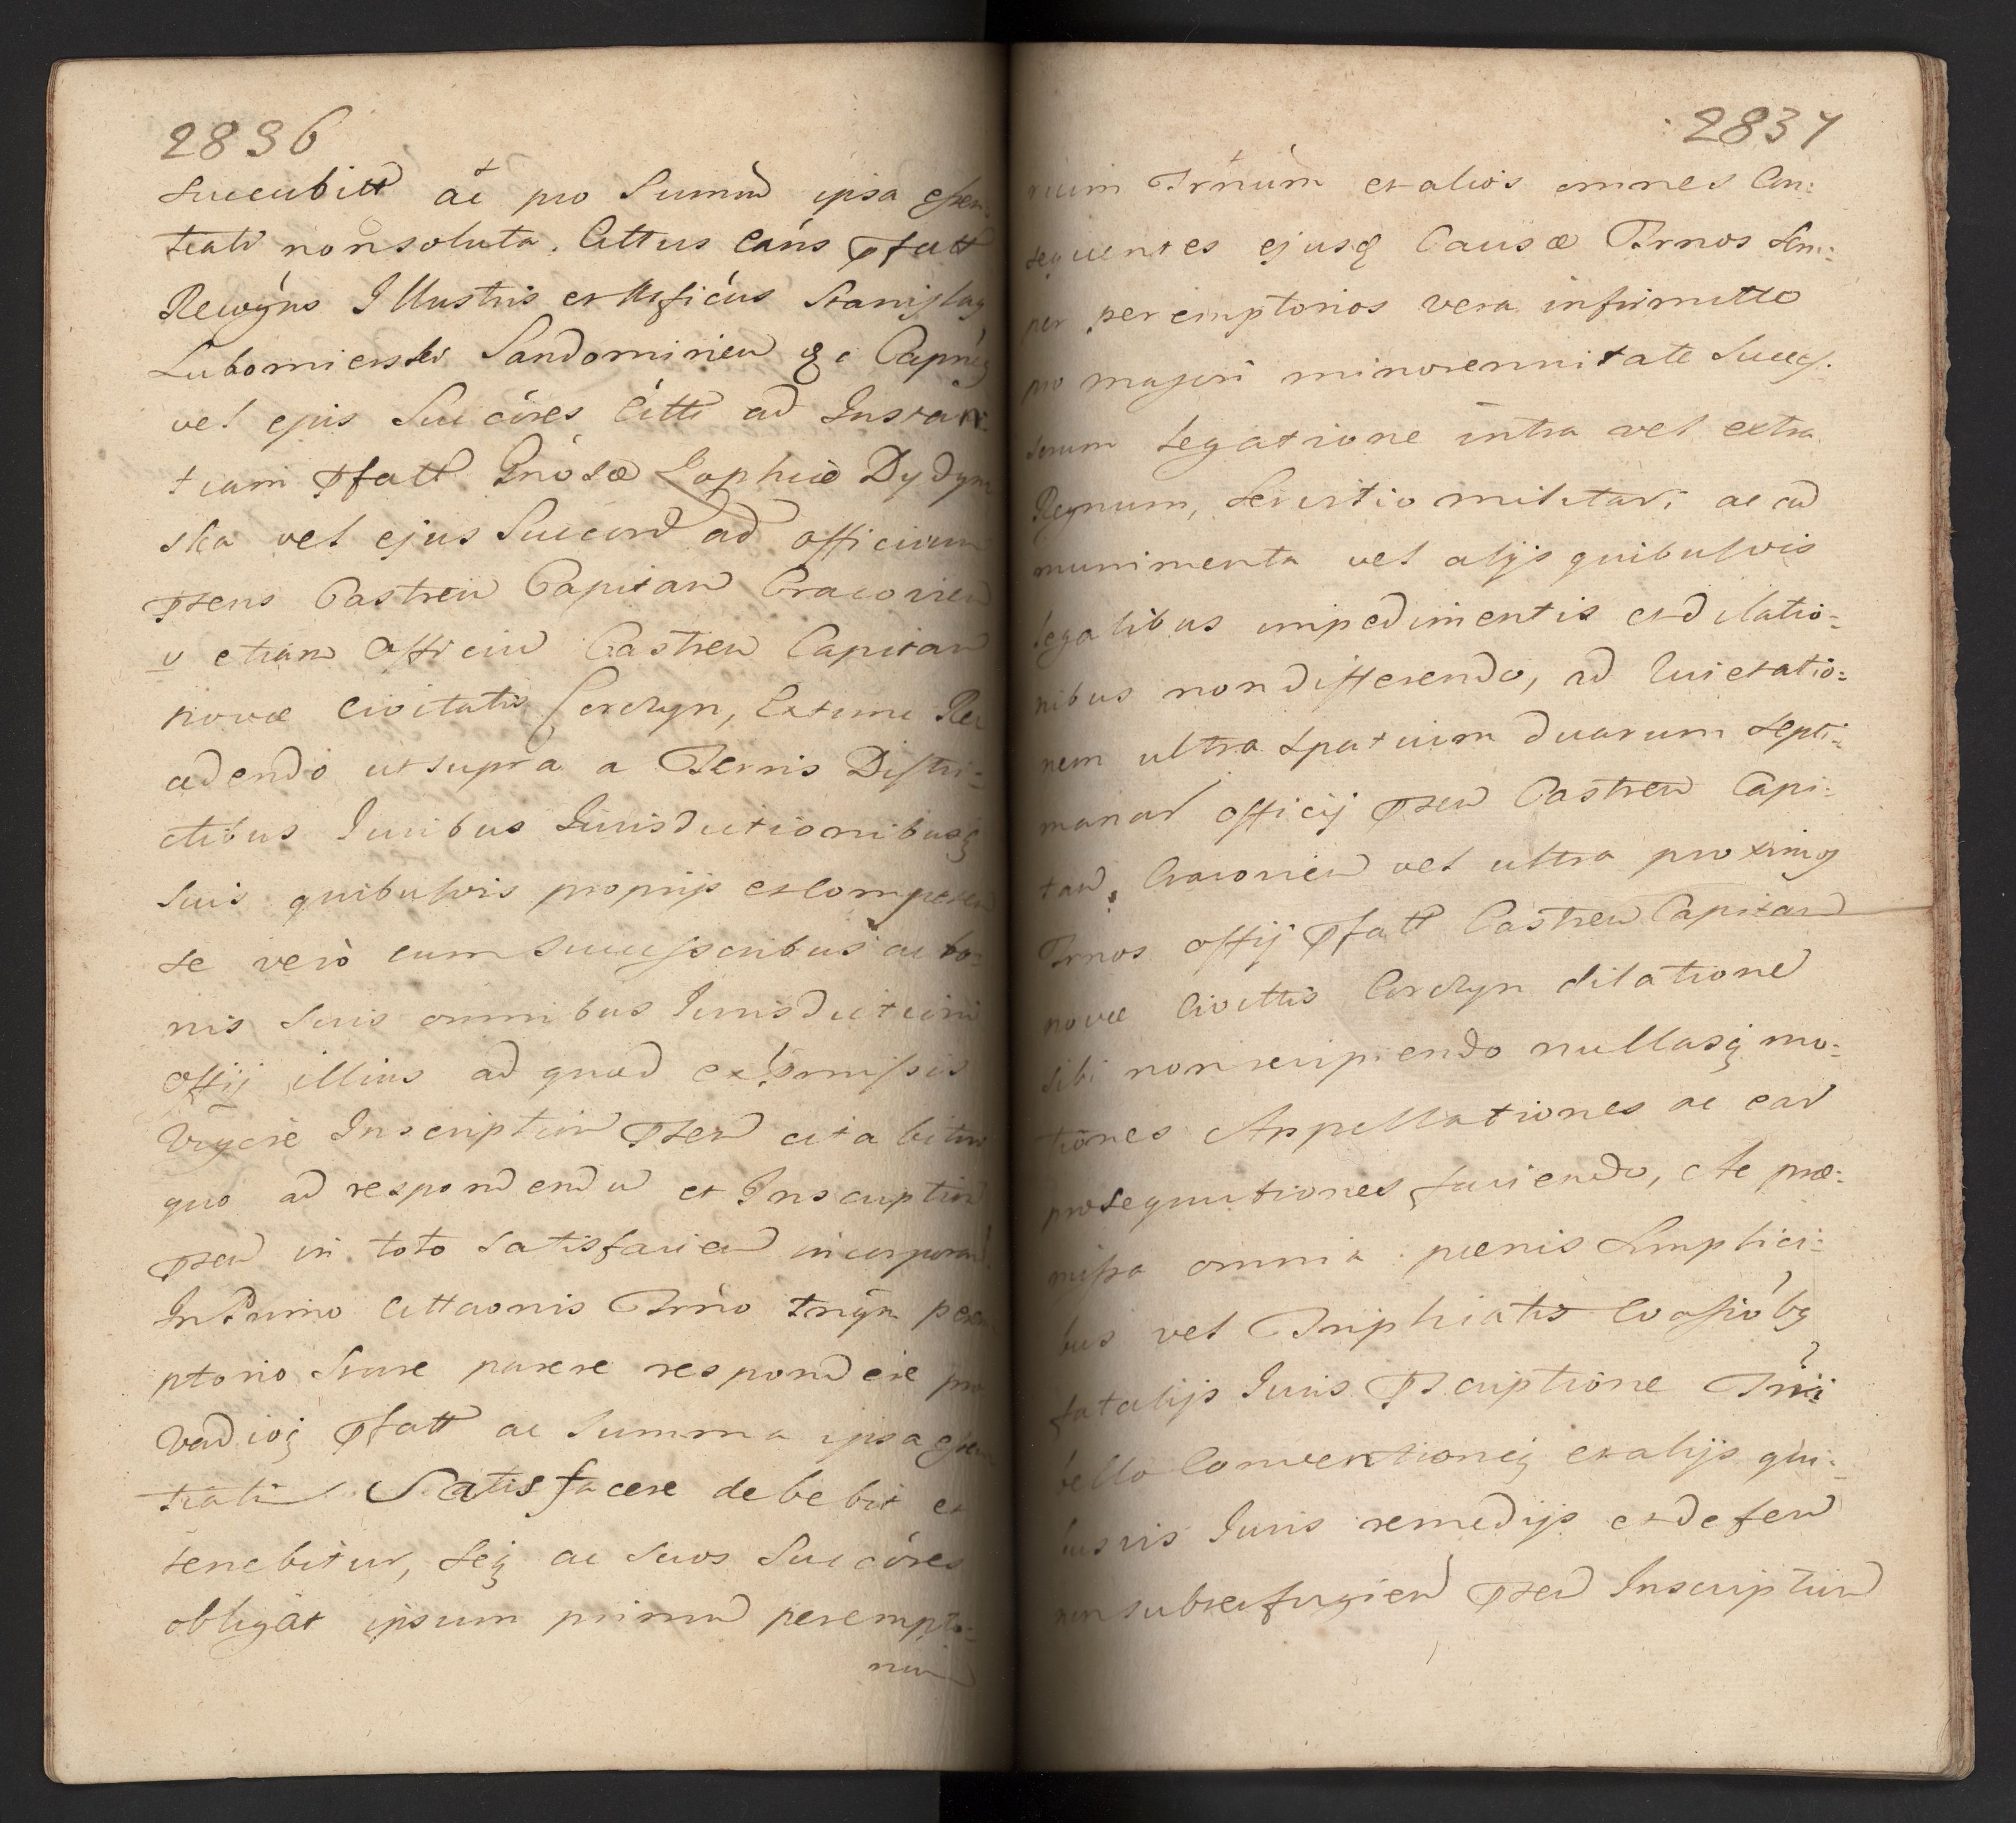 2836
succubitt ac pro Summa ipsa essen
tiali non soluta. Cittus eans Pfatt
Recogns Illustris et Mgficus Stanislaꝯ
Lubomierski Sandomirien &c Capneꝯ
vel ejus Succores Citti ad Instan
tiam Pfatt Gnosæ Zophiæ Dydyn
ska vel ejus Succord ad officium
Psens Castren Capitan Cracovien
v etiam Officiu Castren Capitan
novæ Civitatis Corczyn, Extunc Re
adendo ut supra a Terris Distri:
ctibus Juribus Jurisdictionibusq
suis quibusvis proprijs et competen
se vero cum successoribus ac bo:
nis suis omnibus Jurisdictioni
offij illius ad quod ex Pmissis
Vigore Inscriptiin Psen citabitur
quo ad respondendu et Inscriptioni
Psen in toto satisfacien incorporan
In Primo Cittaonis Trno tnqm perem
ptorio stare parere respondere pro
vadioq Pfatt ac summa ipsa essen
tiali Satisfacere debebit et
tenebitur, seq ac suos Succores
obligat ipsum primu perempto:
riu
2837
rium Trnum et alios omnes Con:
sequentes ejusq Causæ Trnos sem:
per peremptorios vera infirmitte
pro majori minorennitate Success.
sorum legatione intra vel extra
Regnum, servitio militari ac ad
munimenta vel alijs quibusvis
legalibus impedimentis et dilatio:
nibus non differendo, ad Quietatio:
nem ultra spatium duarum septi:
manar officij Psen Castren Capi:
tan Cracovien vel ultra proximos
Trnos offij Pfatt Castren Capitan
novæ Civittis Corczyn dilatione
sibi non recipiendo nullasq mo:
tiones Appellationes ac ear
prosequutiones faciendo, Ate præ:
missa omnia pœnis simplici:
bus vel Triplicatis Coossiobq
fatalijs Juris Pscriptione Trii
bello Conventioneq et alijs qui:
busvis Juris remedijs et defen
non subterfugien Psen Inscriptiin